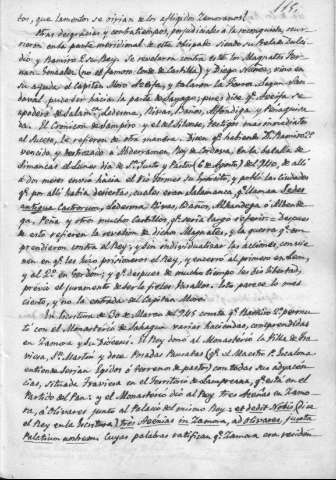 115.
tos, que lamentos se oirian de los afligidos Zamoranos!
Otras desgracias y contratiempos, perjudiciales á la reconquista, ocur-
rieron en la parte meridional de este obispado siendo su Prelado Dulci-
dio y Ramiro 2.º Rey. Se revelaron contra este los Magnates Fer-
nan Gonzalez (no el famoso Conde de Castilla) y Diego Nuñez, vino en
su ayuda el Capitan Moro Aceifa, y talaron la Tierra. Segun San-
doval, pudo ser hácia la parte de Sayago, pues dice q.e Aceifa se
apoderó de Salam.ca, Ledesma, Rivas, Baños, Alhandiga y Penaguisda.
El Cronicon de Sampiro y el del Silense, testigos mas inmediatos
al suceso, le refieren de otra manera. Dicen q.e habiendo D.n Ramiro 2.º
vencido y destrozado á Abderramen, Rey de Cordova, en la batalla de
Simancas el Lunes dia de S.n Justo y Pastor (6 de Agosto) del 940, de allí
á dos meses envió hácia el rio Tormes su ejército, y pobló las ciudades
q.e por allí habia desiertas, cuales eran Salamanca, q.e llaman Sedes
antiqua Castrorum, Ledesma, Rivas, Baños, Alhandega ó Albonde-
ga, Peña y otros muchos Castillos, q.e sería largo referir = Despues
de esto refieren la revelion de dichos Magnates, y la guerra q.e em-
prendieron contra el Rey; y sin individualizar las acciones, convie-
nen en q.e les hizo prisioneros el Rey, y encerró al primero en Leon,
y al 2.º en Gordón; y q.e despues de mucho tiempo les dió libertad,
previo el juramento de ser le fieles vasallos. Esto parece lo mas
cierto, y no la entrada del Capitan Moro.
En Escritura de 30 de Marzo de 945 consta q.e Ramiro 2.º permu-
tó con el Monasterio de Sahagun varias haciendas, comprendidas
en Zamora y su Diócesi. El Rey donó al Monasterio la Villa de Tra-
viesa, S.n Martin y doce Posadas Pausatas (q.e el Maestro P. Escalona
entiende serian Egidos ó terreno de pastos) con todas sus adyacen-
cias, sitiada Traviesa en el Territorio de Lampreana, q.e está en el
Partido del Pan: y el Monasterio dió al Rey tres Aceñas en Zamo-
ra, á Olivares junto al Palacio del mismo Rey: = et dedit Nobis (dice
el Rey en la Escritura) tres Acénias in Zamora, ad olivares, juxta
Palatium nostrum. Cuyas palabras ratifican q.e Zamora era residen-